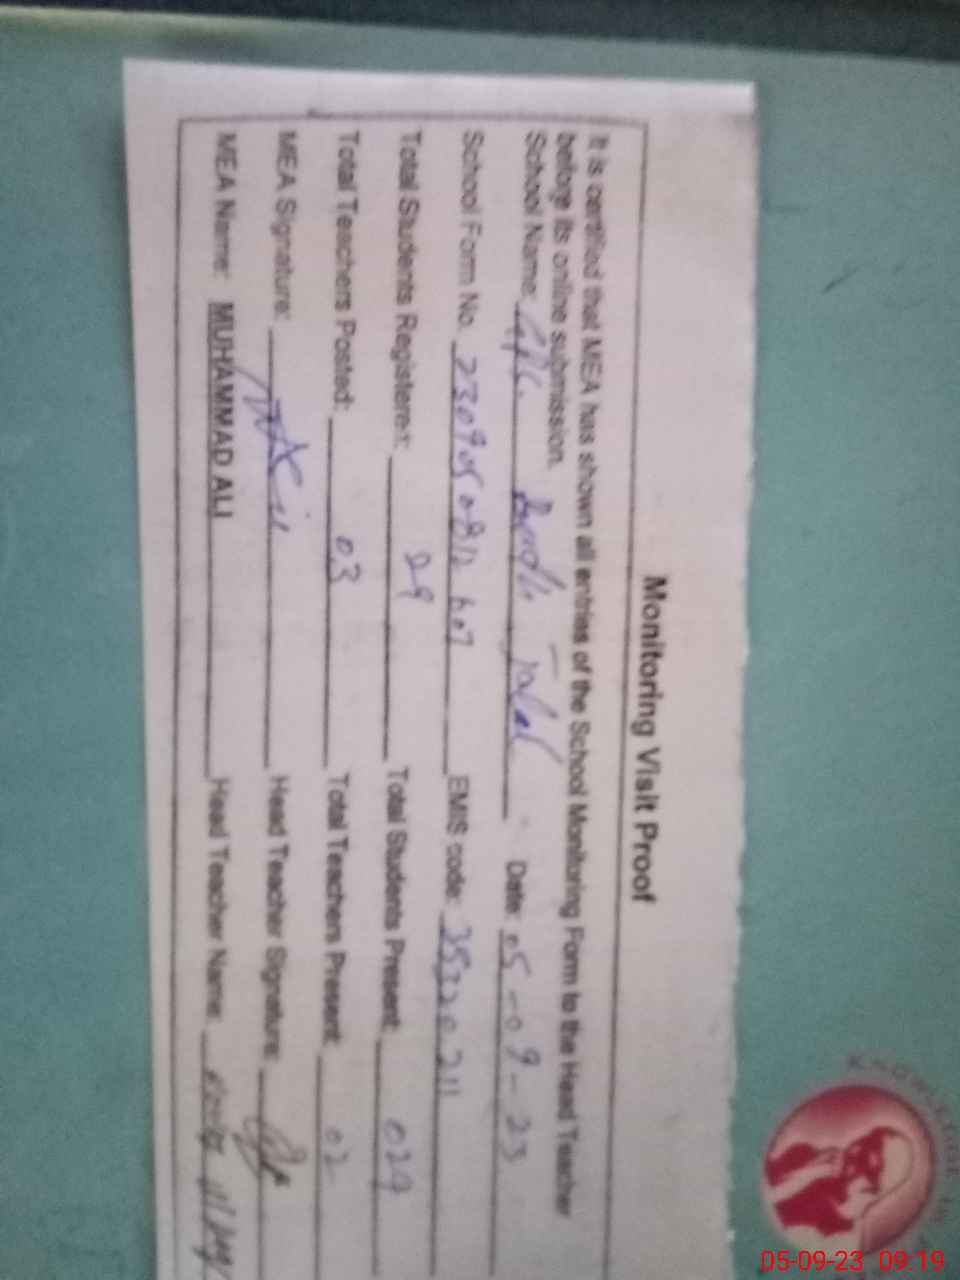 Monitoring Visit Proof
It is certified that MEA has shown all entries of the School Monitoring Form to the Head Teacher
before its online submission.
School Name: Date: 05-09-23
School Form No. EMIS code: 35320211
Total Students Registered: 29 Total Students Present: 029
Total Teachers Posted: 03 Total Teachers Present: 02
MEA Signature: Head Teacher Signature:
MEA Name: MUHAMMAD ALI Head Teacher Name:
05-09-23 09:19